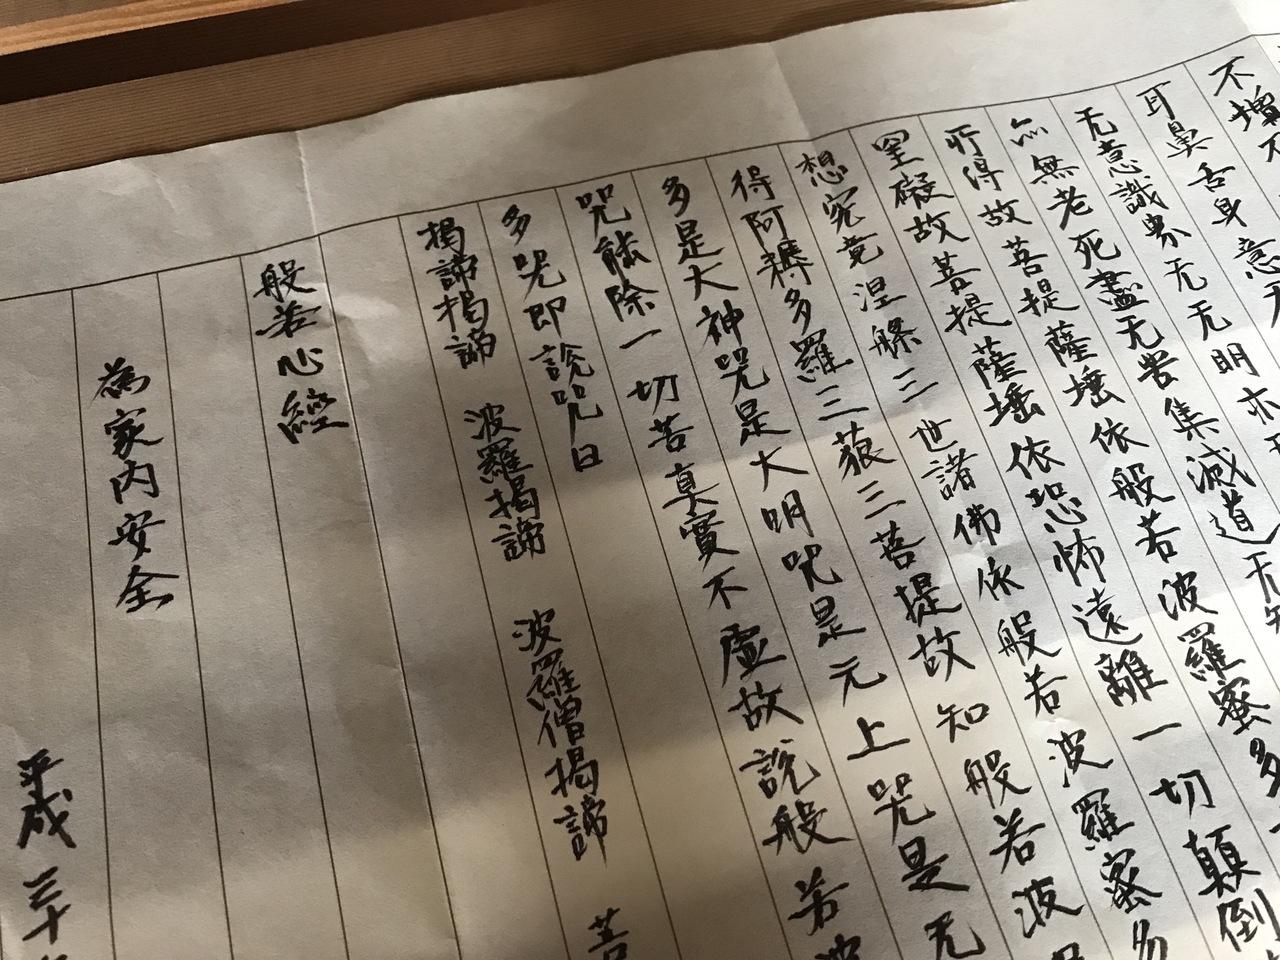 不増不
耳鼻舌身意无
无意識界无无明亦无
亦無老死盡无苦集滅道无知
所得故菩提薩埵依般若波羅蜜多
罣礙故菩提薩埵依恐怖遠離一切顛倒
想究竟涅槃三世諸佛依般若波羅蜜多
得阿耨多羅三藐三菩提故知般若波
多是大神咒是大明咒是无上咒是无
咒能除一切苦真實不虛故説般若波
多咒即説咒曰
揭諦揭諦 波羅揭諦 波羅僧揭諦 菩
般若心經
為家内安全
平成三十